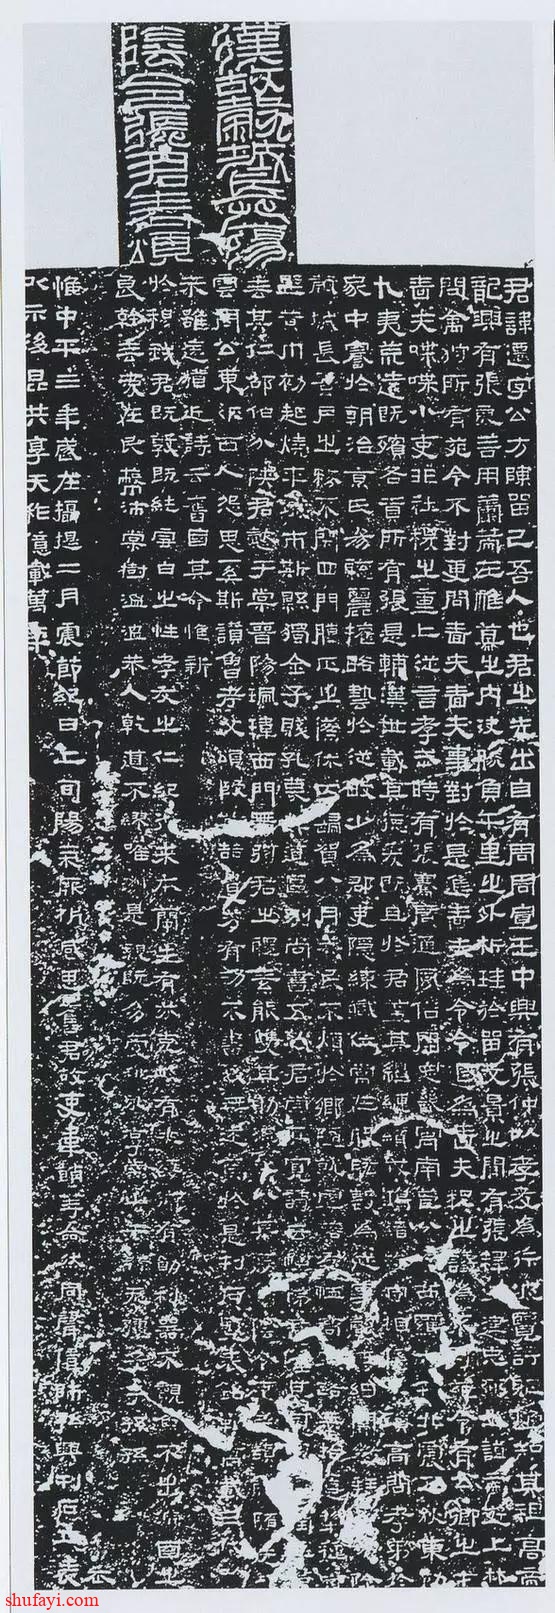 漢故穀城長蕩
陰令張君表頌
君諱遷字公方陳留己吾人也君之先出自有周周宣王中興有張仲以孝友為行披覽詩雅煥知其祖高帝
龍興有張良善用籌策在帷幕之內決勝負千里之外析珪於留文景之間有張釋之建忠弼之謨帝遊上林
問禽狩所有苑令不對更問嗇夫嗇夫事對於是進嗇夫為令令退為嗇夫釋之議為不可苑令有公卿之才
嗇夫喋喋小吏非社稷之重上從言孝武時有張騫廣通風俗開定畿寓南苞八蠻西羈六戎北震五狄東勤
九夷荒遠既殯各貢所有張是輔漢世載其德爰既且於君蓋其繵縺纘戎鴻緒牧守相係不殞高問孝弟於
家中謇於朝治京氏易聰麗權略藝於從畋少為郡吏隱練職位常在股肱數為從事聲無細聞徵拜郎中除
穀城長蠶月之務不閉四門臘正之僚休囚歸賀八月筭民不煩於鄉隨就虛落存恤高年路無拾遺犁種宿
野黃巾初起燒平城市斯縣獨全子賤孔蔑其道區別尚書五教君崇其寬詩云愷悌君隆其恩東里潤色君
垂其仁邵伯分陝君懿于棠晉陽珮瑋西門帶弦君之體素能雙其勛流化八基遷蕩陰令吏民頡頏隨送如
雲周公東征西人怨思奚斯讚魯考父頌殷前喆遺芳有功不書後無述焉於是刊石豎表銘勒萬載三代以
來雖遠猶近詩云舊國其命惟新
於穆我君既敦既純雪白之性孝友之仁紀行來本蘭生有芬克岐有兆綏御有勛利器不覿魚不出淵國之
良幹垂愛在民蔽沛棠樹溫溫恭人乾道不繆唯淑是親既多受祉永享南山干祿無疆子子孫孫
惟中平三年歲在攝提二月震節紀日上旬陽氣厥析感思舊君故吏韋萌等僉然同聲賃師孫興刊石立表
以示後昆共享天祚億載萬年
shufayi.com